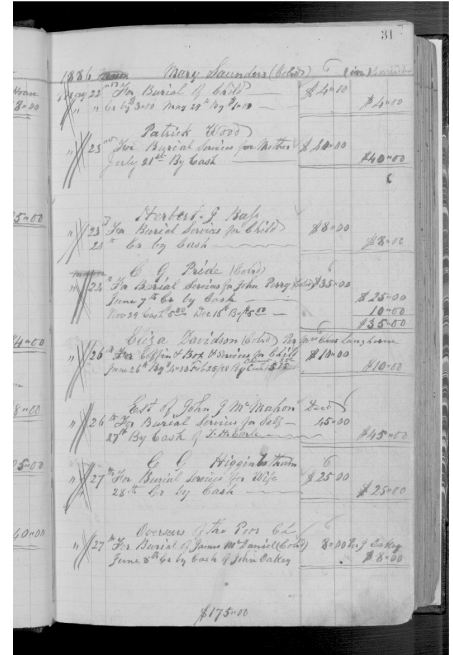 31
1886 Mary Saunders (Cold)
May 22nd For Burial of Child $4=00
" " Cr by $3=00 May 29th By $1=00 $4=00
Patrick Wood
" 23rd For Burial Services for Mother $40=00
July 21st By Cash $40=00
Herbert J Bass
" 23rd For Burial Services for Child $8=00
25th Cr by Cash $8=00
C G Pride (Cold)
" 24th For Burial Services for John Perry (Cold) $35=00
June 7th Cr by Cash $25=00
Nov 29 Cash 5.00 Dec 15th By $5.00 10=00
$35=00
Eliza Davidson (Cold)
" 26th For Coffin & Box & Services for Child $10=00
June 26th By $10=00
Est of John J McMahon Decd
" 26th For Burial Services for Self 45=00
27th By Cash of $45=00
C G Higginbotham
" 27th For Burial Services for Wife $25.00
28th Cr by Cash $25=00
Overseers of the Poor
" 27th For Burial of James McDaniel (Cold) 8=00 J Oakey
June 8th Cr by Cash of John Oakey $8=00
$175=00
8=00
5=00
4=00
8=00
25=00
60=00